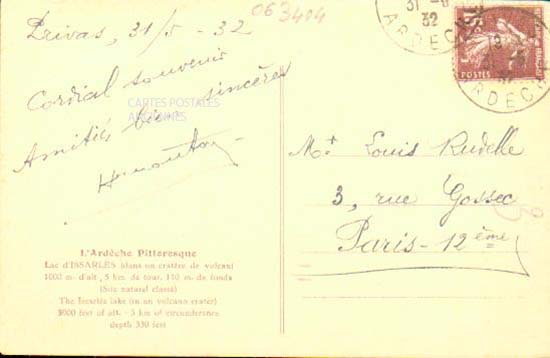 Privas, 31/5 - 32
063404
Cordial souvenir
Amitiés bien sincères
CARTES POSTALES
ANCIENNES
L'Ardèche Pittoresque
Lac d'ISSARLÈS (dans un cratère de volcan)
1000 m. d'alt., 5 km. de tour, 110 m. de fonds
(Site naturel classé)
The Issarlès lake (in an volcano crater)
3000 feet of alt. - 3 km of circumference
depth 330 feet
31 -5
32
ARDECHE
15c
POSTES
ARDECHE
Mr Louis Rudelle
3, rue Gossec
Paris - 12ème